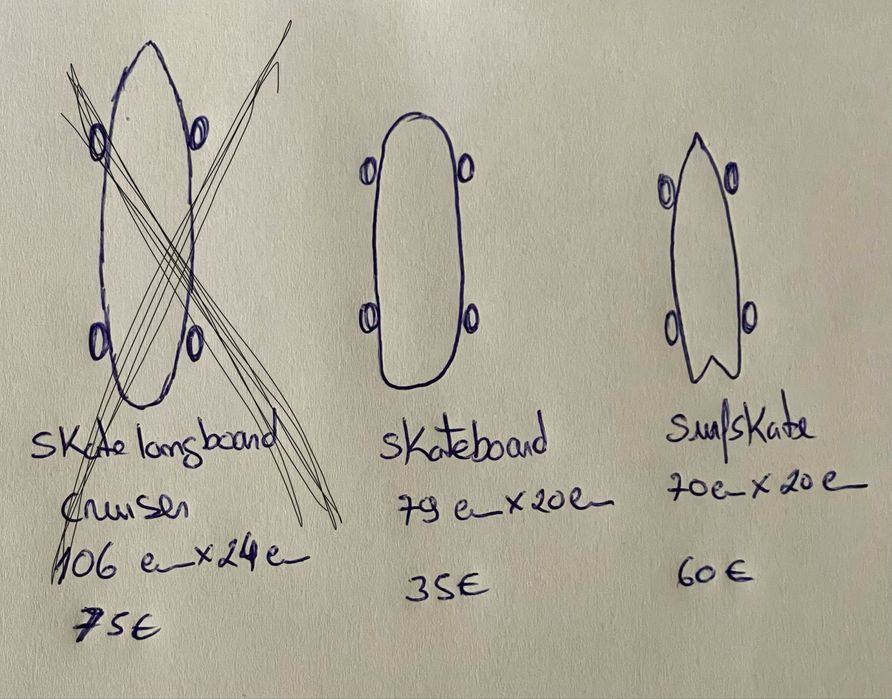 Skate longboard
Cruiser
106 cm x 24 cm
75€
Skateboard
79 cm x 20 cm
35€
Surfskate
70cm x 20 cm
60€